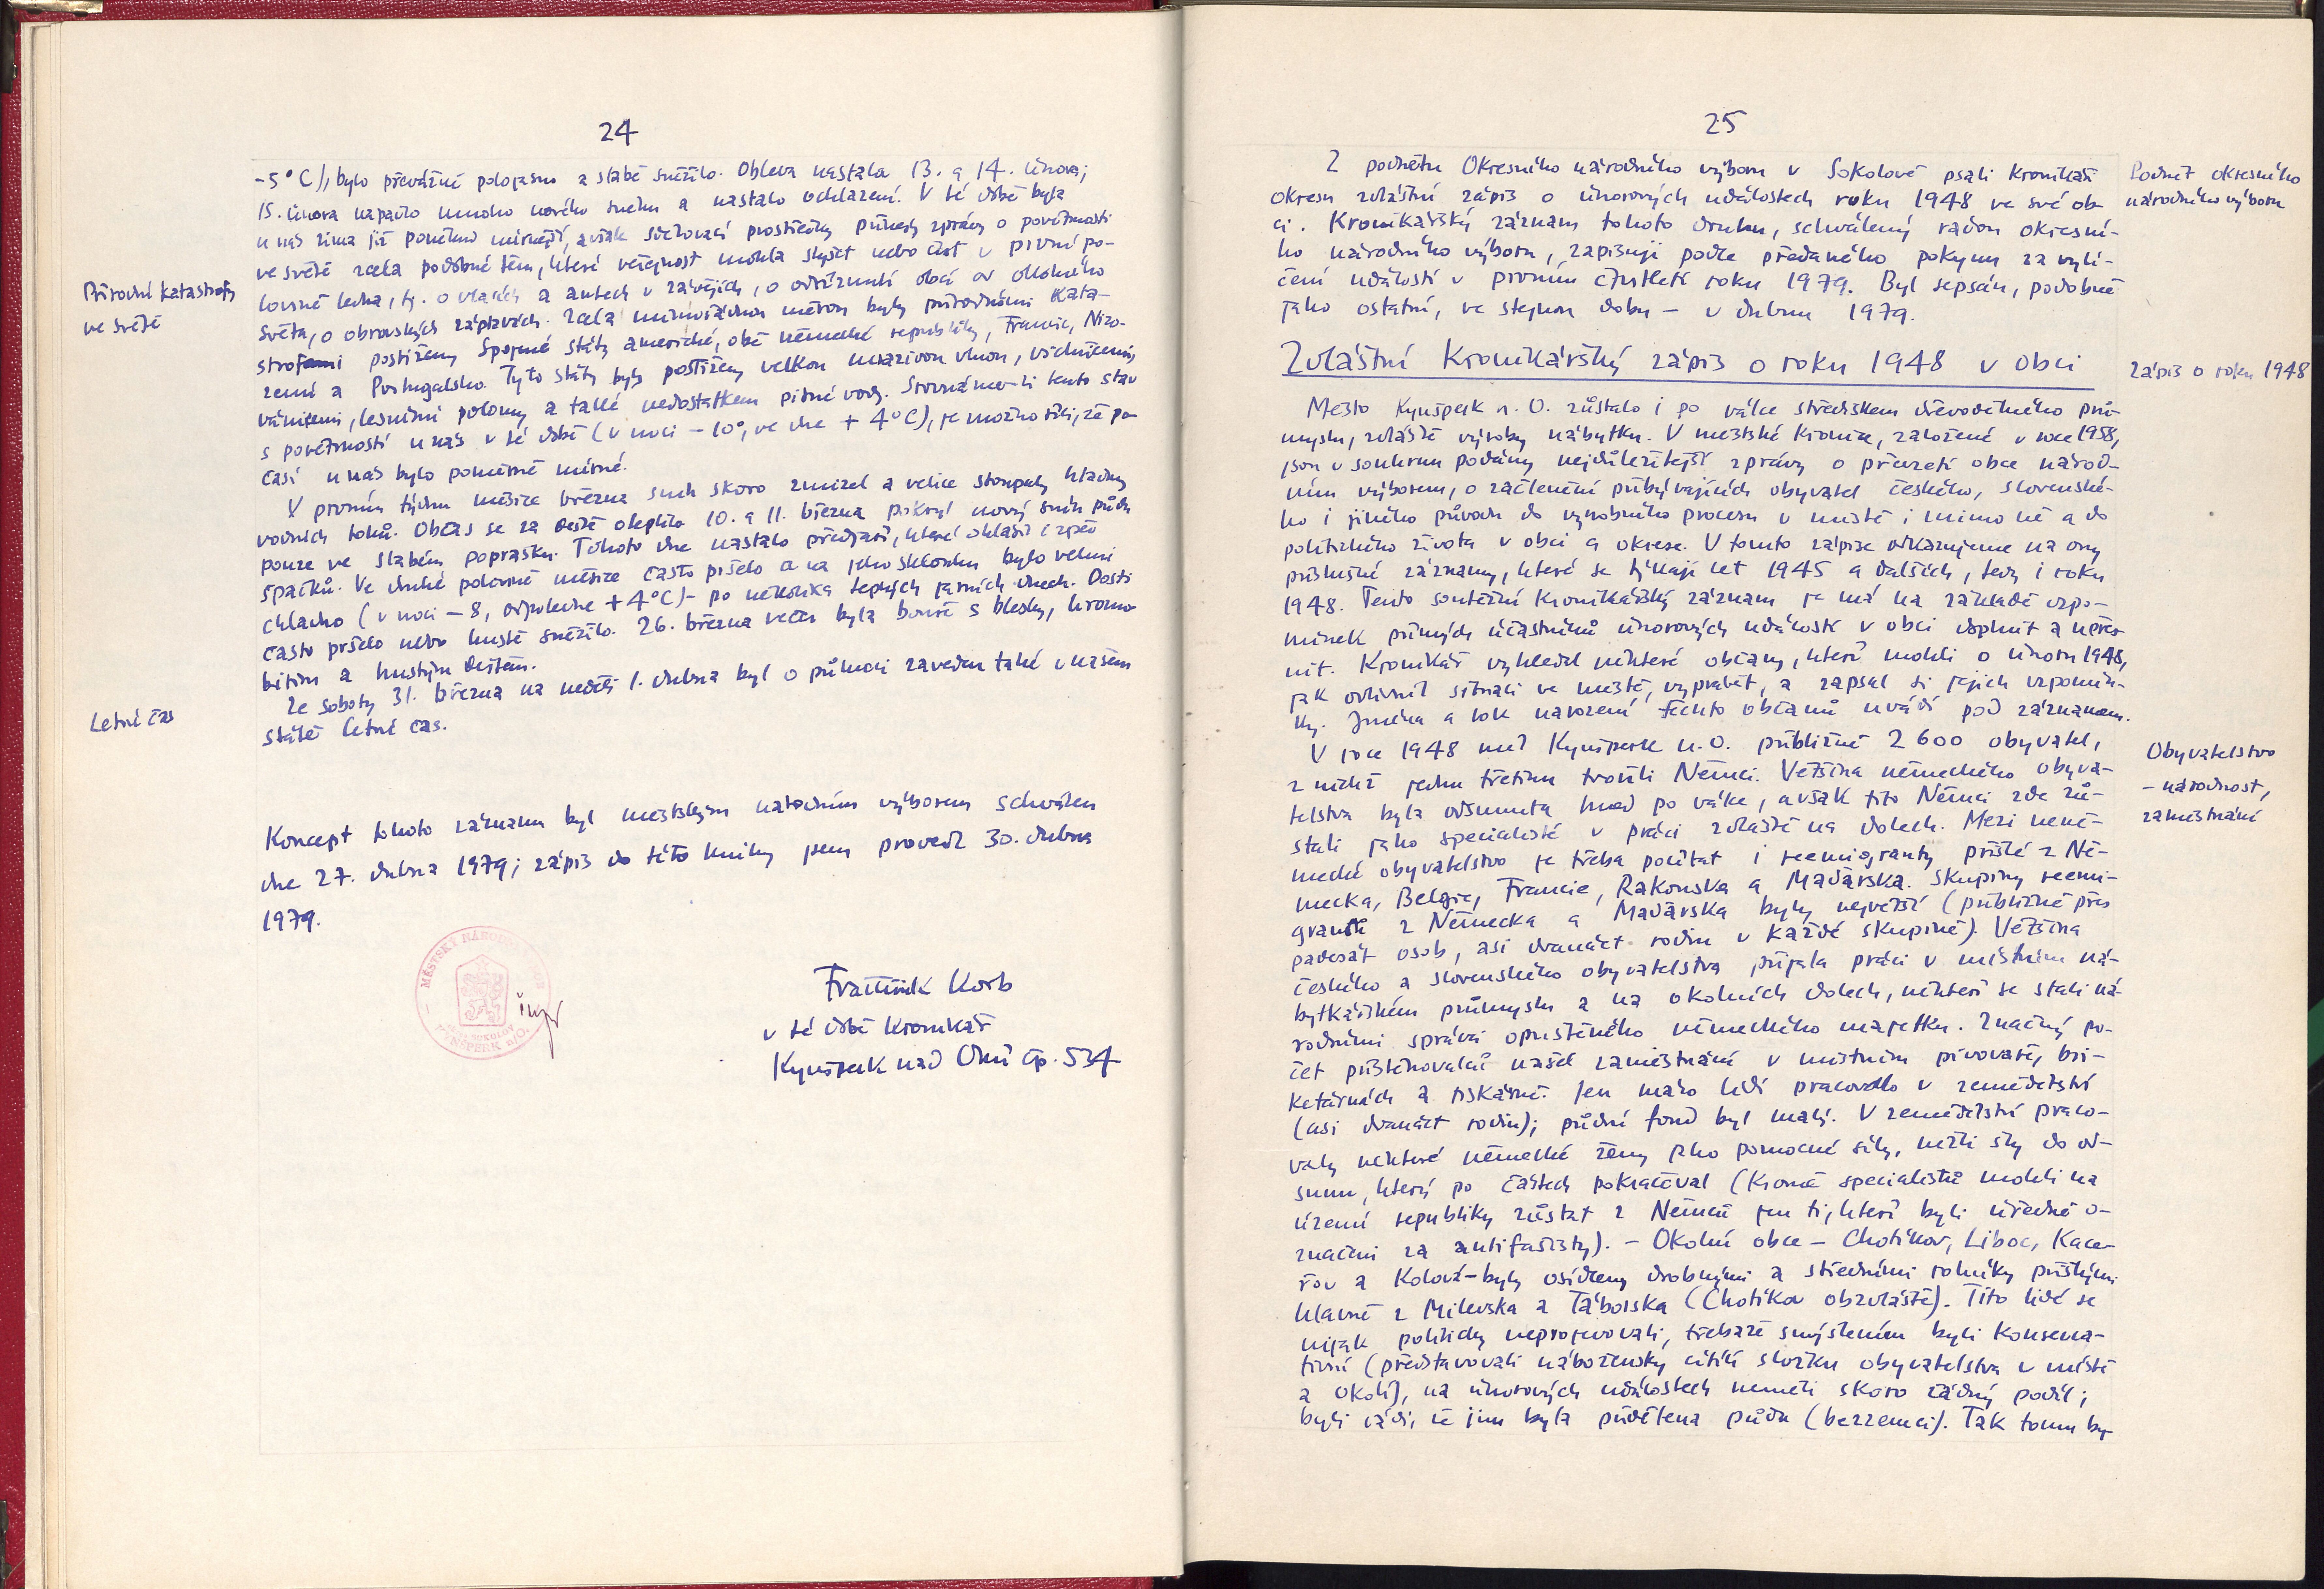 24
-5°C), bylo převážně polojasno a slabě sněžilo. Obleva nastala 13. a 14. února;
15. února napadlo mnoho nového sněhu a nastalo ochlazení. V té době byla
u nás zima již poněkud mírnější, avšak sdělovací prostředky přinesly zprávy o povětrnosti
ve světě zcela podobné těm, které veřejnost mohla slyšet nebo číst v první po-
Přírodní katastrofy
lovině ledna, tj. o vlacích a autech v závějích, o odříznutí obcí od okolního
ve světě
světa, o obrovských záplavách. Zcela mimořádnou měrou byly přírodními kata-
strofami postiženy Spojené státy americké, obě německé republiky, Francie, Nizo-
zemí a Portugalsko. Tyto státy byly postiženy velkou mrazivou vlnou, vichřicemi,
vánicemi, lesními polomy a také nedostatkem pitné vody. Srovnáme-li tento stav
s povětrností u nás v té době (v noci -10°, ve dne +4°C), je možno říci, že po-
časí u nás bylo poměrně mírné.
V prvním týdnu měsíce března sníh skoro zmizel a velice stoupaly hladiny
vodních toků. Občas se za deště oteplilo. 10. a 11. března pokryl nový sníh půdu
pouze ve slabém poprašku. Tohoto dne nastalo předjaří, které ohlásil i zpěv
špačků. Ve druhé polovině měsíce často pršelo a na jeho sklonku bylo velmi
chladno (v noci -8, odpoledne +4°C) - po několika teplých jarních dnech. Dosti
často pršelo nebo hustě sněžilo. 26. března večer byla bouře s blesky, hromo-
bitím a hustým deštěm.
Ze soboty 31. března na neděli 1. dubna byl o půlnoci zaveden také v našem
Letní čas
státě letní čas.
Koncept tohoto záznamu byl městským národním výborem schválen
dne 27. dubna 1979; zápis do této knihy jsem provedl 30. dubna
1979.
MĚSTSKÝ NÁRODNÍ VÝBOR
KYNŠPERK n/O.
František Korb
v té době kronikář
Kynšperk nad Ohří čp. 534
25
Z podnětu Okresního národního výboru v Sokolově psali kronikáři
Podnět okresního
okresu zvláštní zápis o únorových událostech roku 1948 ve své ob-
národního výboru
ci. Kronikářský záznam tohoto druhu, schválený radou okresní-
ho národního výboru, zapisuji podle předaného pokynu za vylí-
čení událostí v prvním čtvrtletí roku 1979. Byl sepsán, podobně
jako ostatní, ve stejnou dobu - v dubnu 1979.
Zvláštní kronikářský zápis o roku 1948 v obci
Zápis o roku 1948
Město Kynšperk n. O. zůstalo i po válce střediskem dřevodělného prů-
myslu, zvláště výroby nábytku. V městské kronice, založené v roce 1958,
jsou v souhrnu podány nejdůležitější zprávy o převzetí obce národ-
ním výborem, o začlenění přibývajících obyvatel českého, slovenské-
ho i jiného původu do výrobního procesu v místě i mimo ně a do
politického života v obci a okrese. V tomto zápise odkazujeme na ony
příslušné záznamy, které se týkají let 1945 a dalších, tedy i roku
1948. Tento soutěžní kronikářský záznam je má na základě vzpo-
mínek přímých účastníků únorových událostí v obci doplnit a upřes-
nit. Kronikář vyhledal některé občany, kteří mohli o únoru 1948,
jak ovlivnil situaci ve městě, vyprávět, a zapsal si jejich vzpomín-
ky. Jména a rok narození těchto občanů uvádí pod záznamem.
V roce 1948 měl Kynšperk n. O. přibližně 2 600 obyvatel,
Obyvatelstvo
z nichž jednu třetinu tvořili Němci. Většina německého obyva-
- národnost,
telstva byla odsunuta hned po válce, avšak tito Němci zde zů-
zaměstnání
stali jako specialisté v práci zvláště na dolech. Mezi neně-
mecké obyvatelstvo je třeba počítat i reemigranty přišlé z Ně-
mecka, Belgie, Francie, Rakouska a Maďarska. Skupiny reemi-
grantů z Německa a Maďarska byly největší (přibližně přes
padesát osob, asi dvanáct rodin v každé skupině). Většina
českého a slovenského obyvatelstva přijala práci v místním ná-
bytkářském průmyslu a na okolních dolech, někteří se stali ná-
rodními správci opuštěného německého majetku. Značný po-
čet přistěhovalců našel zaměstnání v místním pivovaře, bri-
ketárnách a tiskárně. Jen málo lidí pracovalo v zemědělství
(asi dvanáct rodin); půdní fond byl malý. V zemědělství praco-
valy některé německé ženy jako pomocné síly, nežli šly do od-
sunu, který po částech pokračoval (kromě specialistů mohli na
území republiky zůstat z Němců jen ti, kteří byli úředně o-
značeni za antifašisty). - Okolní obce - Chotíkov, Liboc, Kace-
řov a Kolová - byly osídleny drobnými a středními rolníky přišlými
hlavně z Milevska a Táborska (Chotíkov obzvláště). Tito lidé se
nijak politicky neprojevovali, třebaže smýšlením byli konserva-
tivní (představovali nábožensky cítící složku obyvatelstva v místě
a okolí), na únorových událostech neměli skoro žádný podíl;
byli rádi, že jim byla přidělena půda (bezzemci). Tak tomu by-